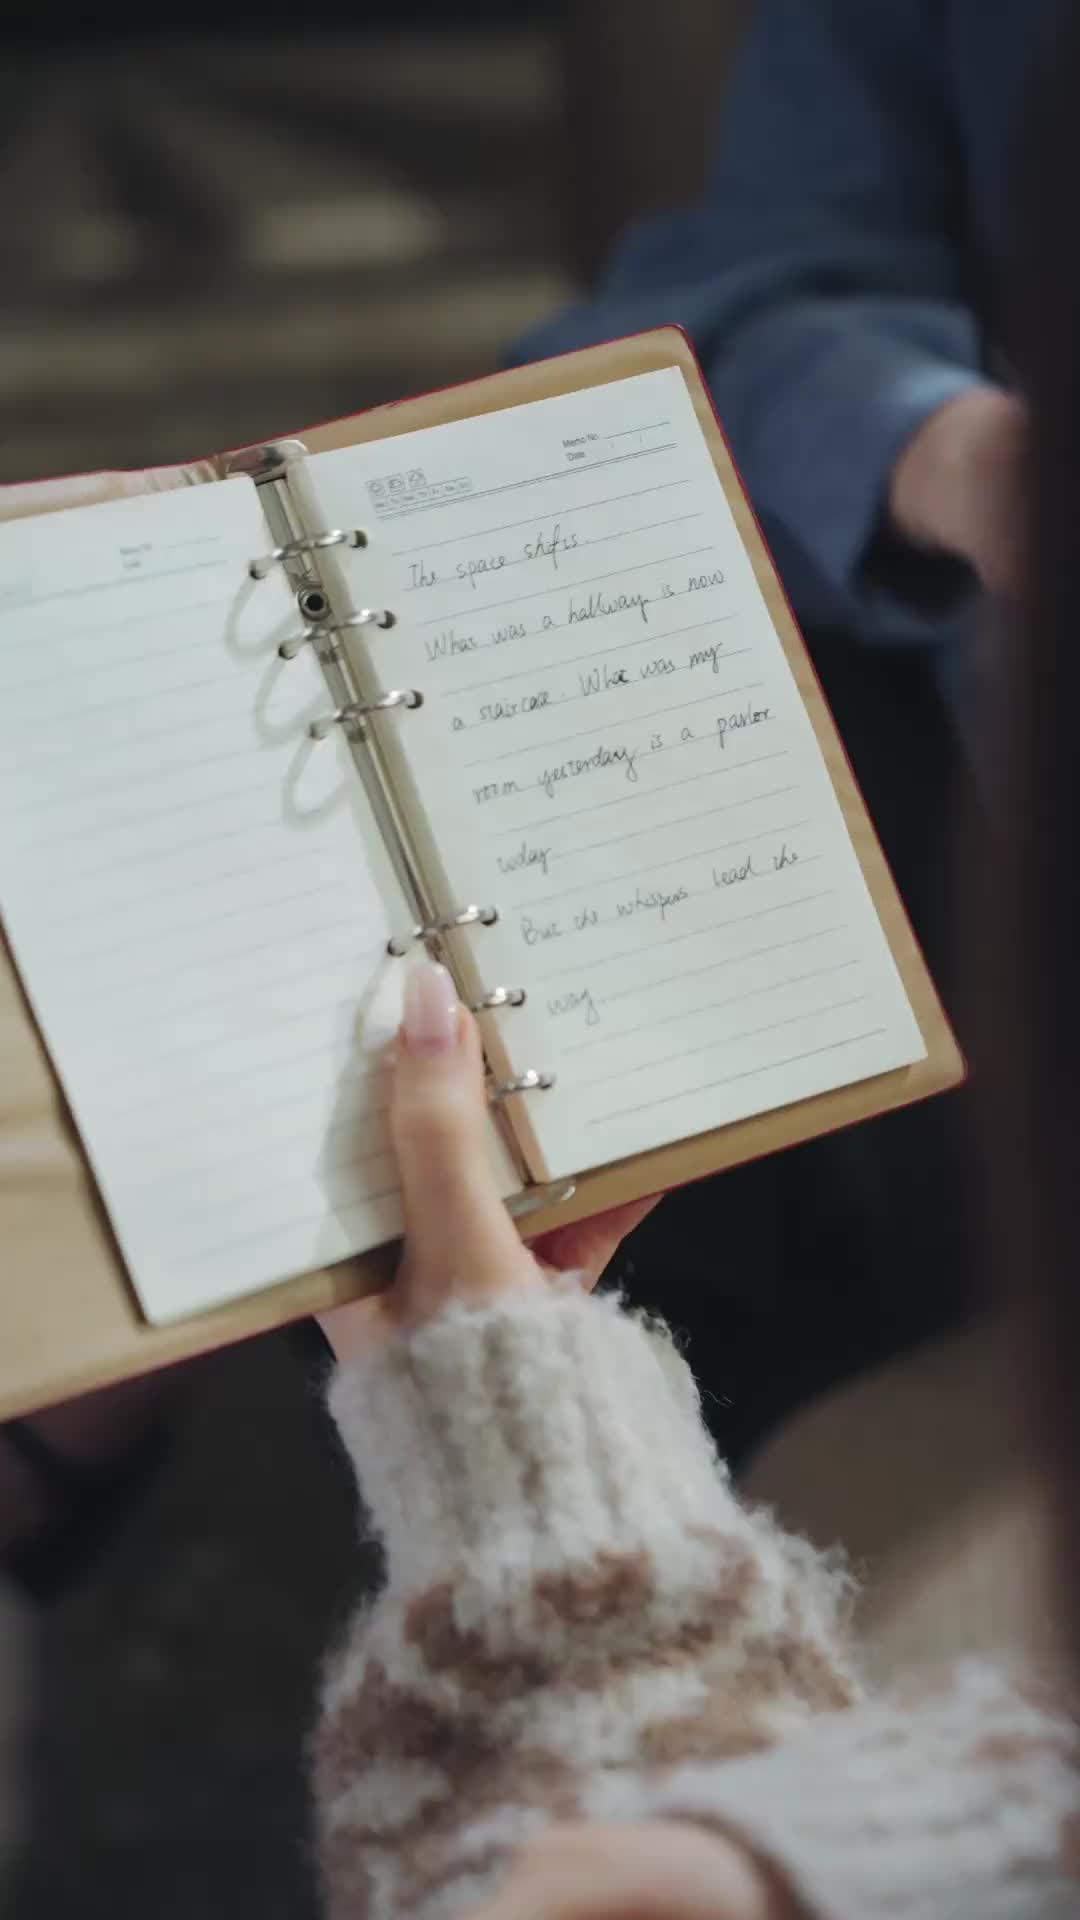 Memo No.
Date
The space shifts.
What was a hallway is now
a staircase. What was my
room yesterday is a parlor
today
But the whispers lead the
way.